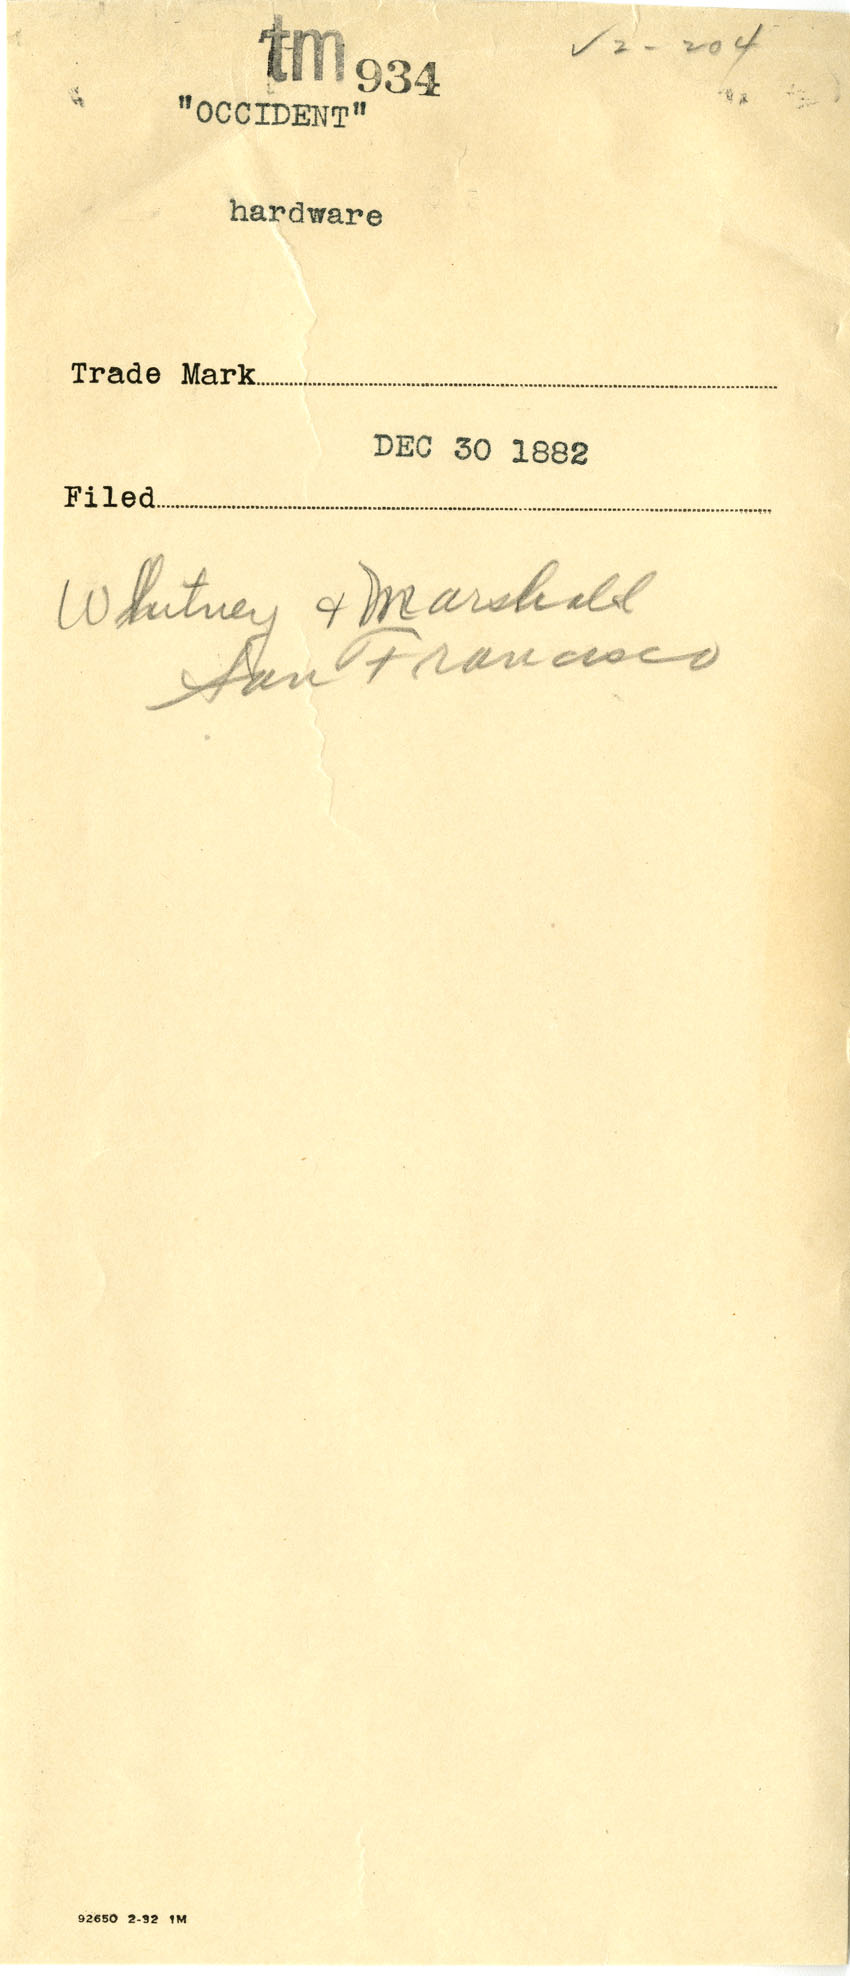 tm 934
√2-204
"OCCIDENT"
hardware
Trade Mark
DEC 30 1882
Filed
Whitney & Marshall
San Francisco
92650 2-32 1M